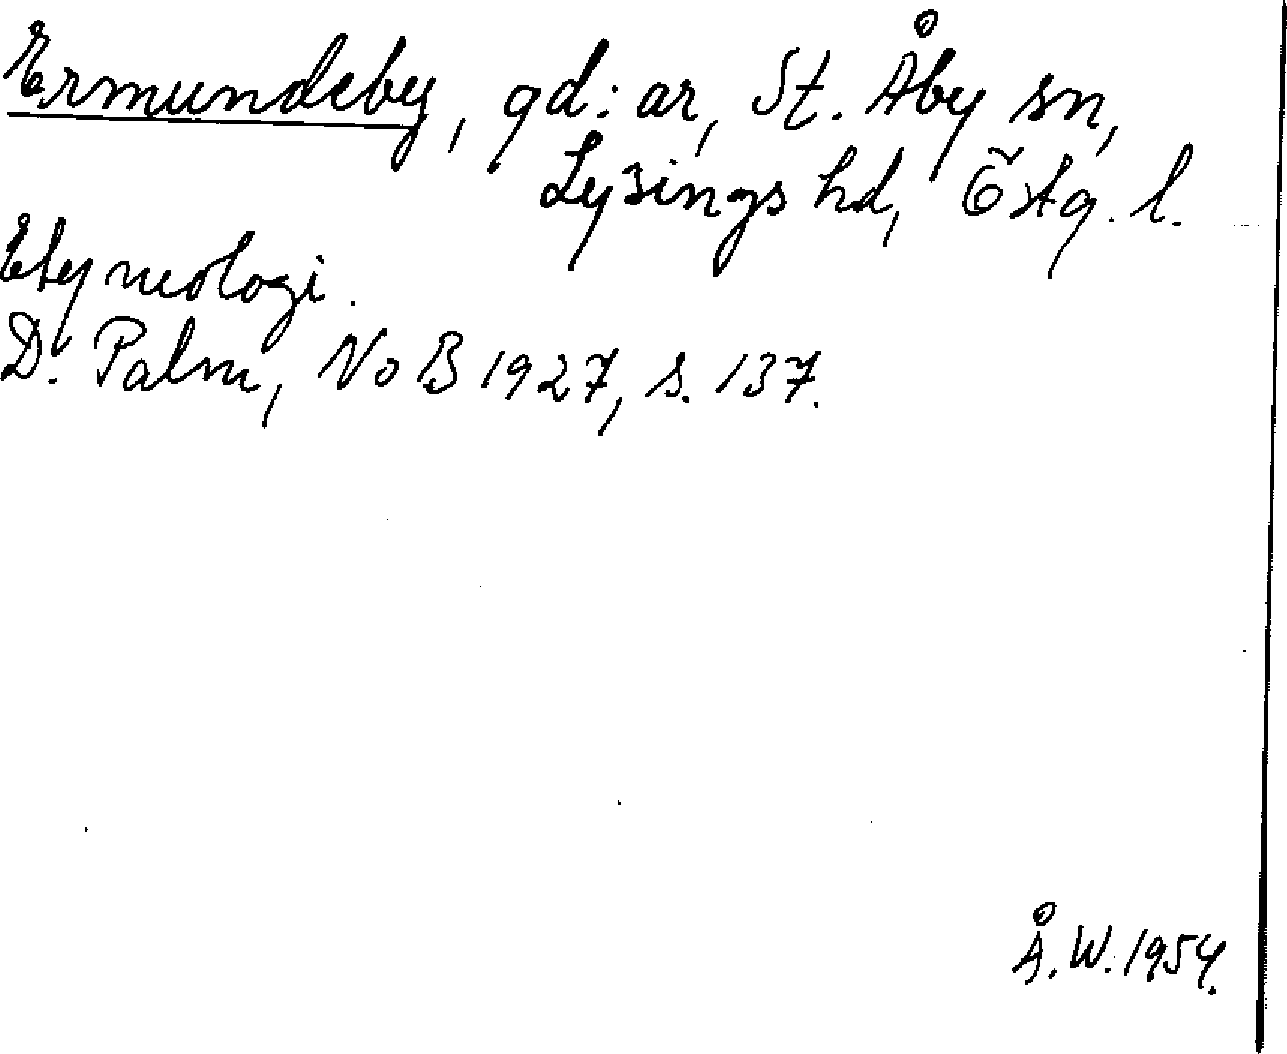 Ermundeby, gd:ar, St. Åby sn,
Lysings hd, Östg. l.
Etymologi.
D. Palm, NoB 1927, s. 137.
Å. W. 1954.